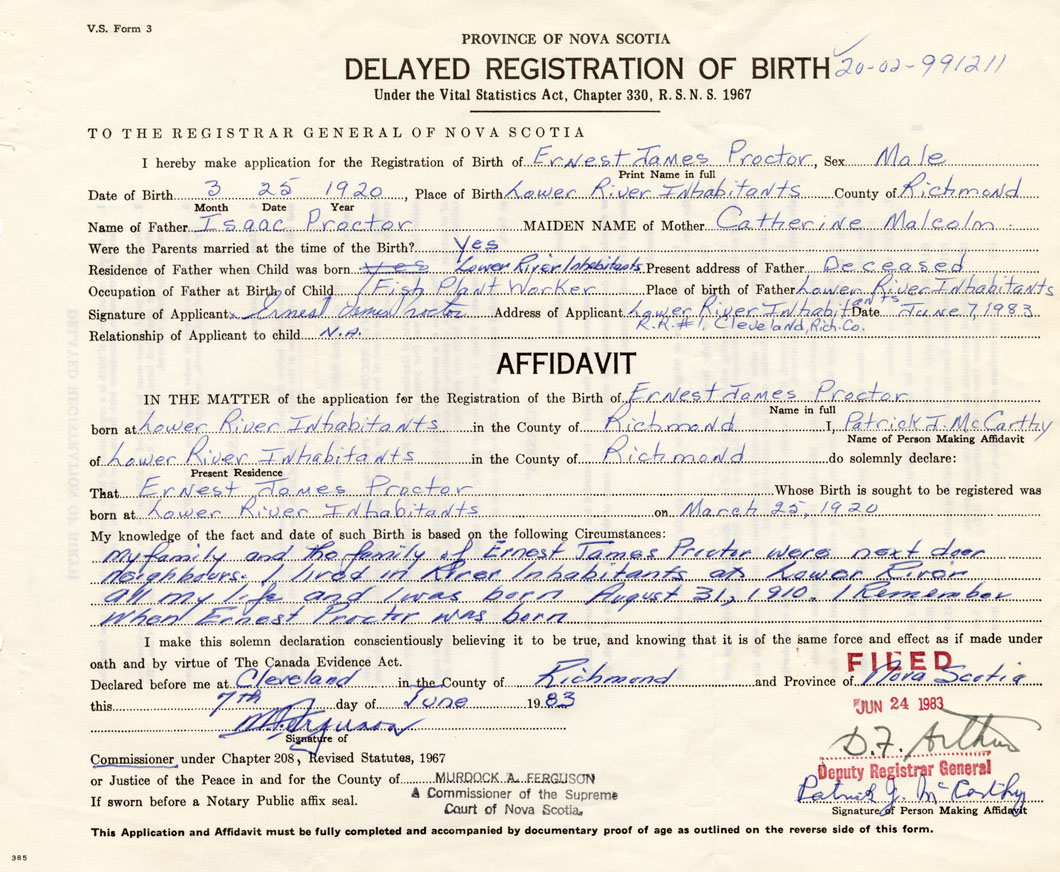 V.S. Form 3
PROVINCE OF NOVA SCOTIA
DELAYED REGISTRATION OF BIRTH 20-02-991211
Under the Vital Statistics Act, Chapter 330, R.S.N.S. 1967
TO THE REGISTRAR GENERAL OF NOVA SCOTIA
I hereby make application for the Registration of Birth of Ernest James Proctor, Sex Male
Print Name in full
Date of Birth 3 25 1920, Place of Birth Lower River Inhabitants County of Richmond
Month Date Year
Name of Father Isaac Proctor MAIDEN NAME of Mother Catherine Malcolm
Were the Parents married at the time of the Birth? Yes
Residence of Father when Child was born yes Lower River Inhabitants Present address of Father Deceased
Occupation of Father at Birth of Child Fish Plant Worker Place of birth of Father Lower River Inhabitants
Signature of Applicant x Ernest James Proctor Address of Applicant Lower River Inhabitants Date June 7, 1983
R.R.#1, Cleveland, Rich. Co.
Relationship of Applicant to child N.A.
AFFIDAVIT
IN THE MATTER of the application for the Registration of the Birth of Ernest James Proctor
Name in full
born at Lower River Inhabitants in the County of Richmond I, Patrick J. McCarthy
Name of Person Making Affidavit
of Lower River Inhabitants in the County of Richmond do solemnly declare:
Present Residence
That Ernest James Proctor Whose Birth is sought to be registered was
born at Lower River Inhabitants on March 25, 1920
My knowledge of the fact and date of such Birth is based on the following Circumstances:
My family and the family of Ernest James Proctor were next door
neighbours. I lived in River Inhabitants at Lower River
all my life and I was born August 31, 1910. I Remember
when Ernest Proctor was born
I make this solemn declaration conscientiously believing it to be true, and knowing that it is of the same force and effect as if made under
oath and by virtue of The Canada Evidence Act.
FILED
Declared before me at Cleveland in the County of Richmond and Province of Nova Scotia
this 7th day of June 1983
JUN 24 1983
M.A. Ferguson
D.F. Arthur
Signature of
Commissioner under Chapter 208, Revised Statutes, 1967
Deputy Registrar General
or Justice of the Peace in and for the County of MURDOCK A. FERGUSON
A Commissioner of the Supreme
Court of Nova Scotia.
Patrick J. McCarthy
If sworn before a Notary Public affix seal.
Signature of Person Making Affidavit
This Application and Affidavit must be fully completed and accompanied by documentary proof of age as outlined on the reverse side of this form.
385